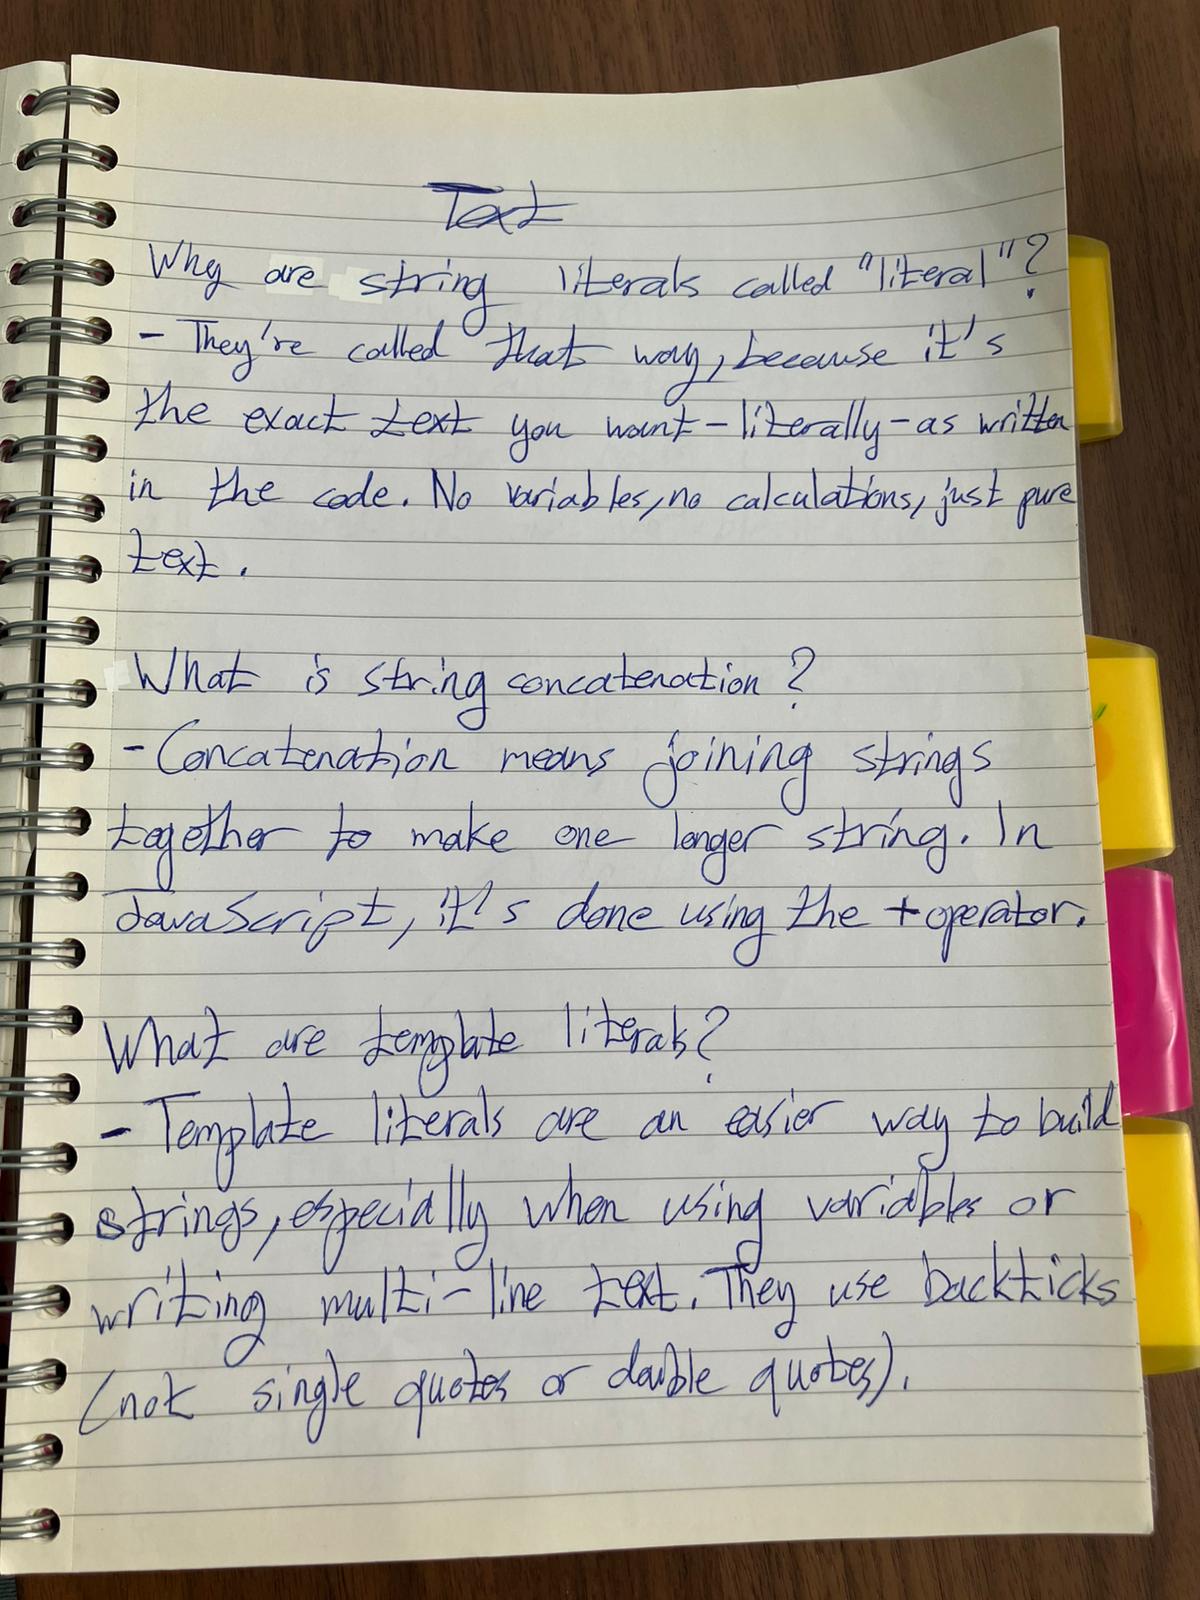 Text
Why are string literals called "literal"?
- They're called that way, because it's
the exact text you want - literally - as written
in the code. No variables, no calculations, just pure
text.
What is string concatenation?
- Concatenation means joining strings
together to make one longer string. In
JavaScript, it's done using the + operator.
What are template literals?
- Template literals are an easier way to build
strings, especially when using variables or
writing multi-line text. They use backticks
(not single quotes or double quotes).